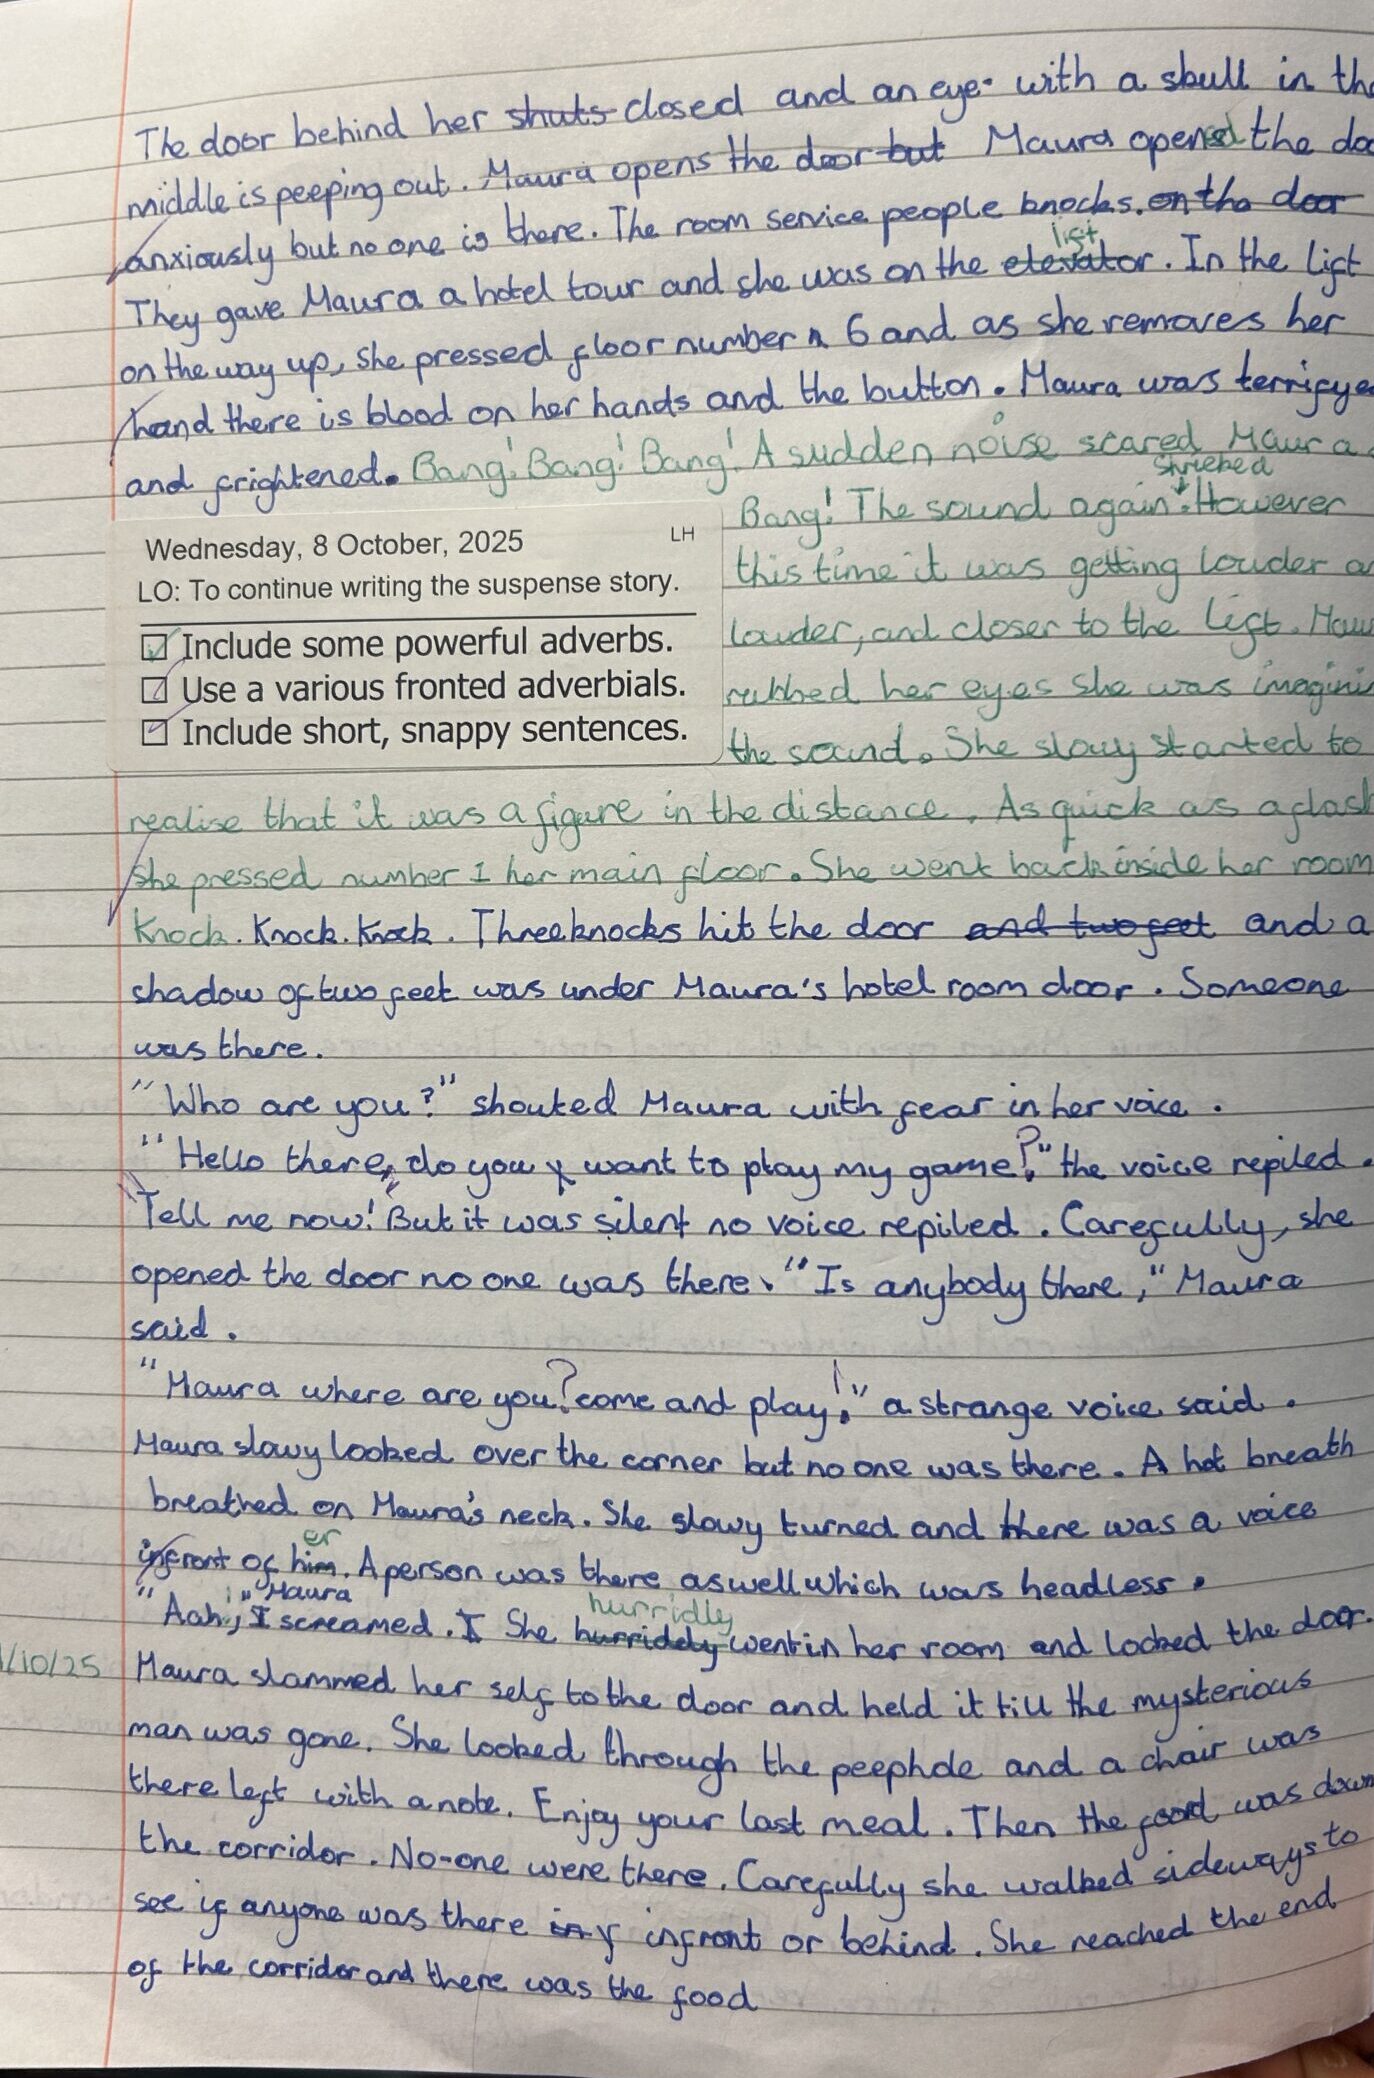 The door behind her shuts closed and an eye with a skull in the
middle is peeping out. Maura opens the door but Maura opened the
anxiously but no one is there. The room service people knocks. on the door
lift
They gave Maura a hotel tour and she was on the elevator. In the lift
on the way up, she pressed floor number 6 and as she removes her
hand there is blood on her hands and the button. Maura was
and frightened. Bang! Bang! Bang! A sudden noise scared Maura.
shrieked
Bang! The sound again. However
this time it was getting louder
louder, and closer to the lift.
rubbed her eyes she was
the sound. She slowy started to
Wednesday, 8 October, 2025 LH
LO: To continue writing the suspense story.
Include some powerful adverbs.
Use a various fronted adverbials.
Include short, snappy sentences.
realise that it was a figure in the distance. As quick as a
she pressed number 1 her main floor. She went back inside her room
Knock. Knock. Knock. Three knocks hit the door and two feet and a
shadow of two feet was under Maura's hotel room door. Someone
was there.
"Who are you?" shouted Maura with fear in her voice.
"Hello there, do you want to play my game?" the voice repiled.
"Tell me now!" But it was silent no voice repiled. Carefully, she
opened the door no one was there. "Is anybody there," Maura
said.
"Maura where are you? come and play!" a strange voice said.
Maura slowy looked over the corner but no one was there. A hot breath
breathed on Maura's neck. She slowy turned and there was a voice
er
infront of him. A person was there aswell which was headless.
"Maura hurridly
"Aah, I screamed. I She hurridely went in her room and locked the door.
/10/25 Maura slammed her self to the door and held it till the mysterious
man was gone. She looked through the peephole and a chair was
there left with a note. Enjoy your last meal. Then the food was down
the corridor. No-one were there. Carefully she walked sideways to
see if anyone was there in infront or behind. She reached the end
of the corridor and there was the food